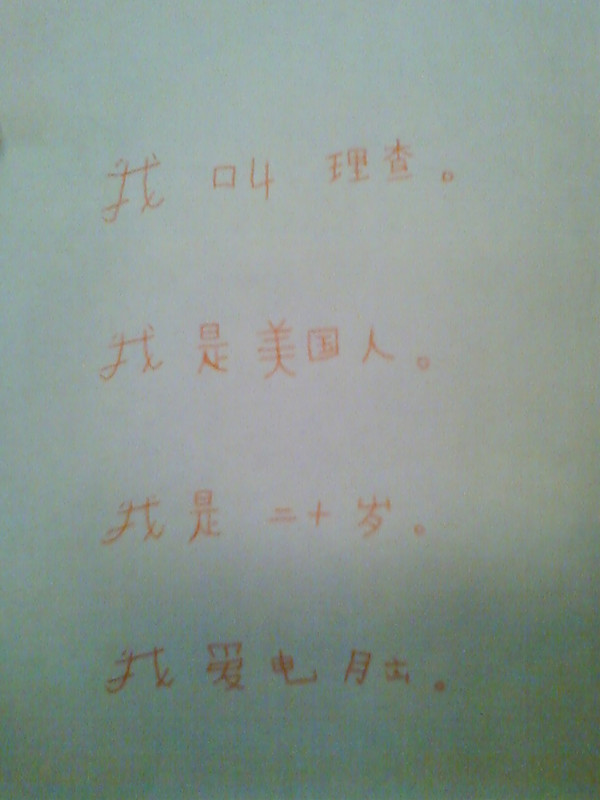 我叫理查。
我是美国人。
我是二十岁。
我爱电脑。